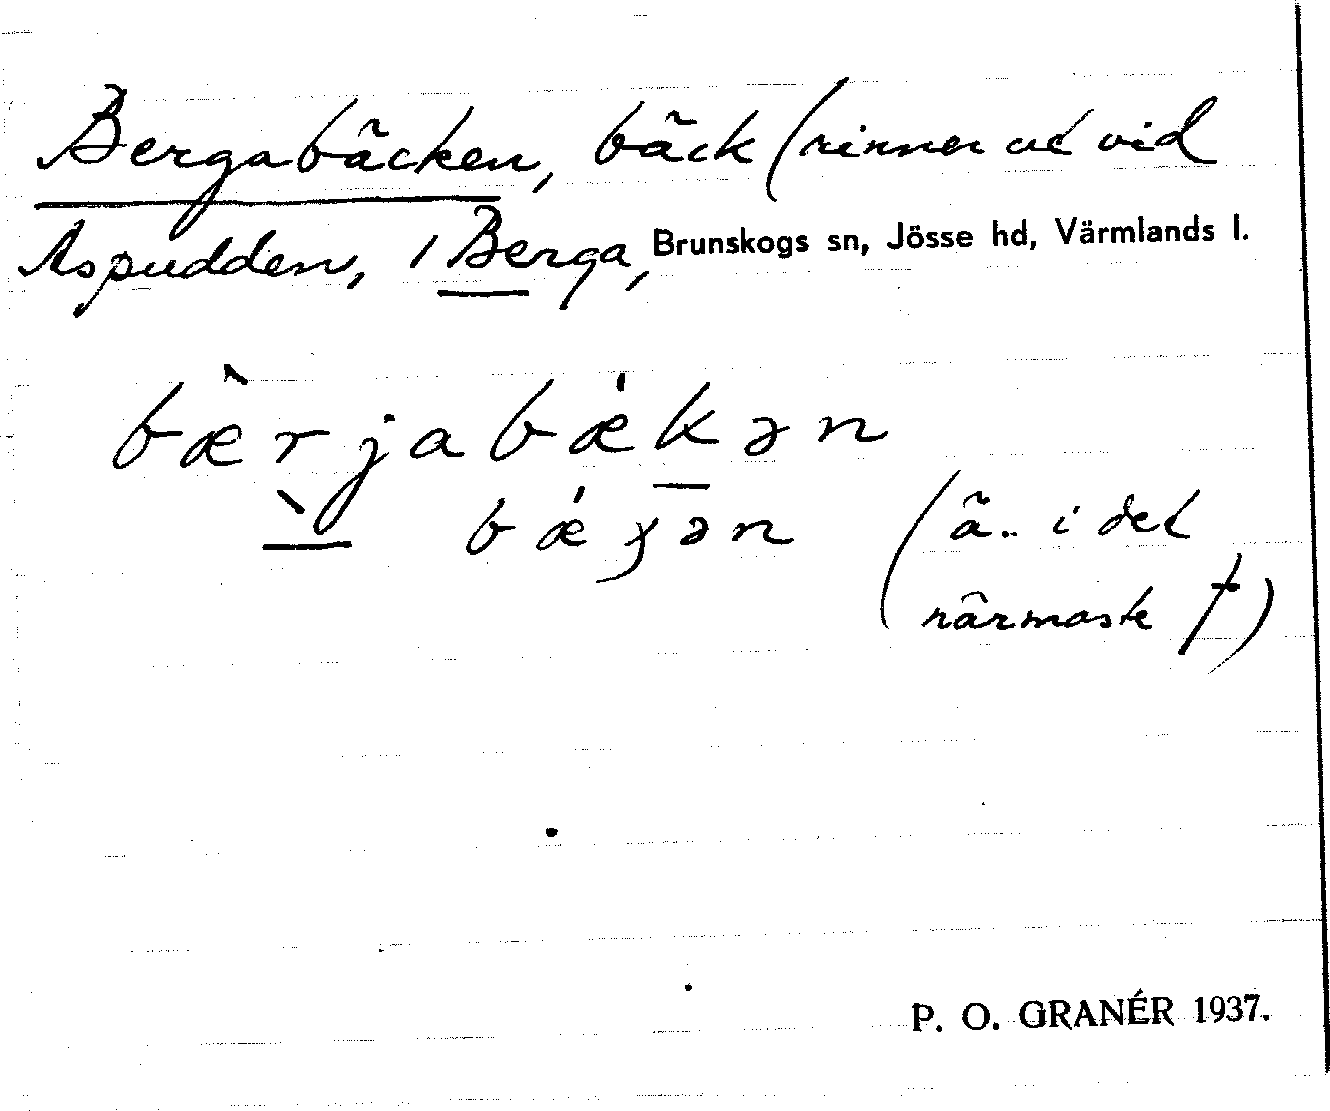 Bergabäcken, bäck (rinner ut vid
Aspudden, / Berga, Brunskogs sn, Jösse hd, Värmlands l.
bæ̀rjabǽkən
bǽ ən (ä.. i det
närmaste †)
P. O. GRANÉR 1937.